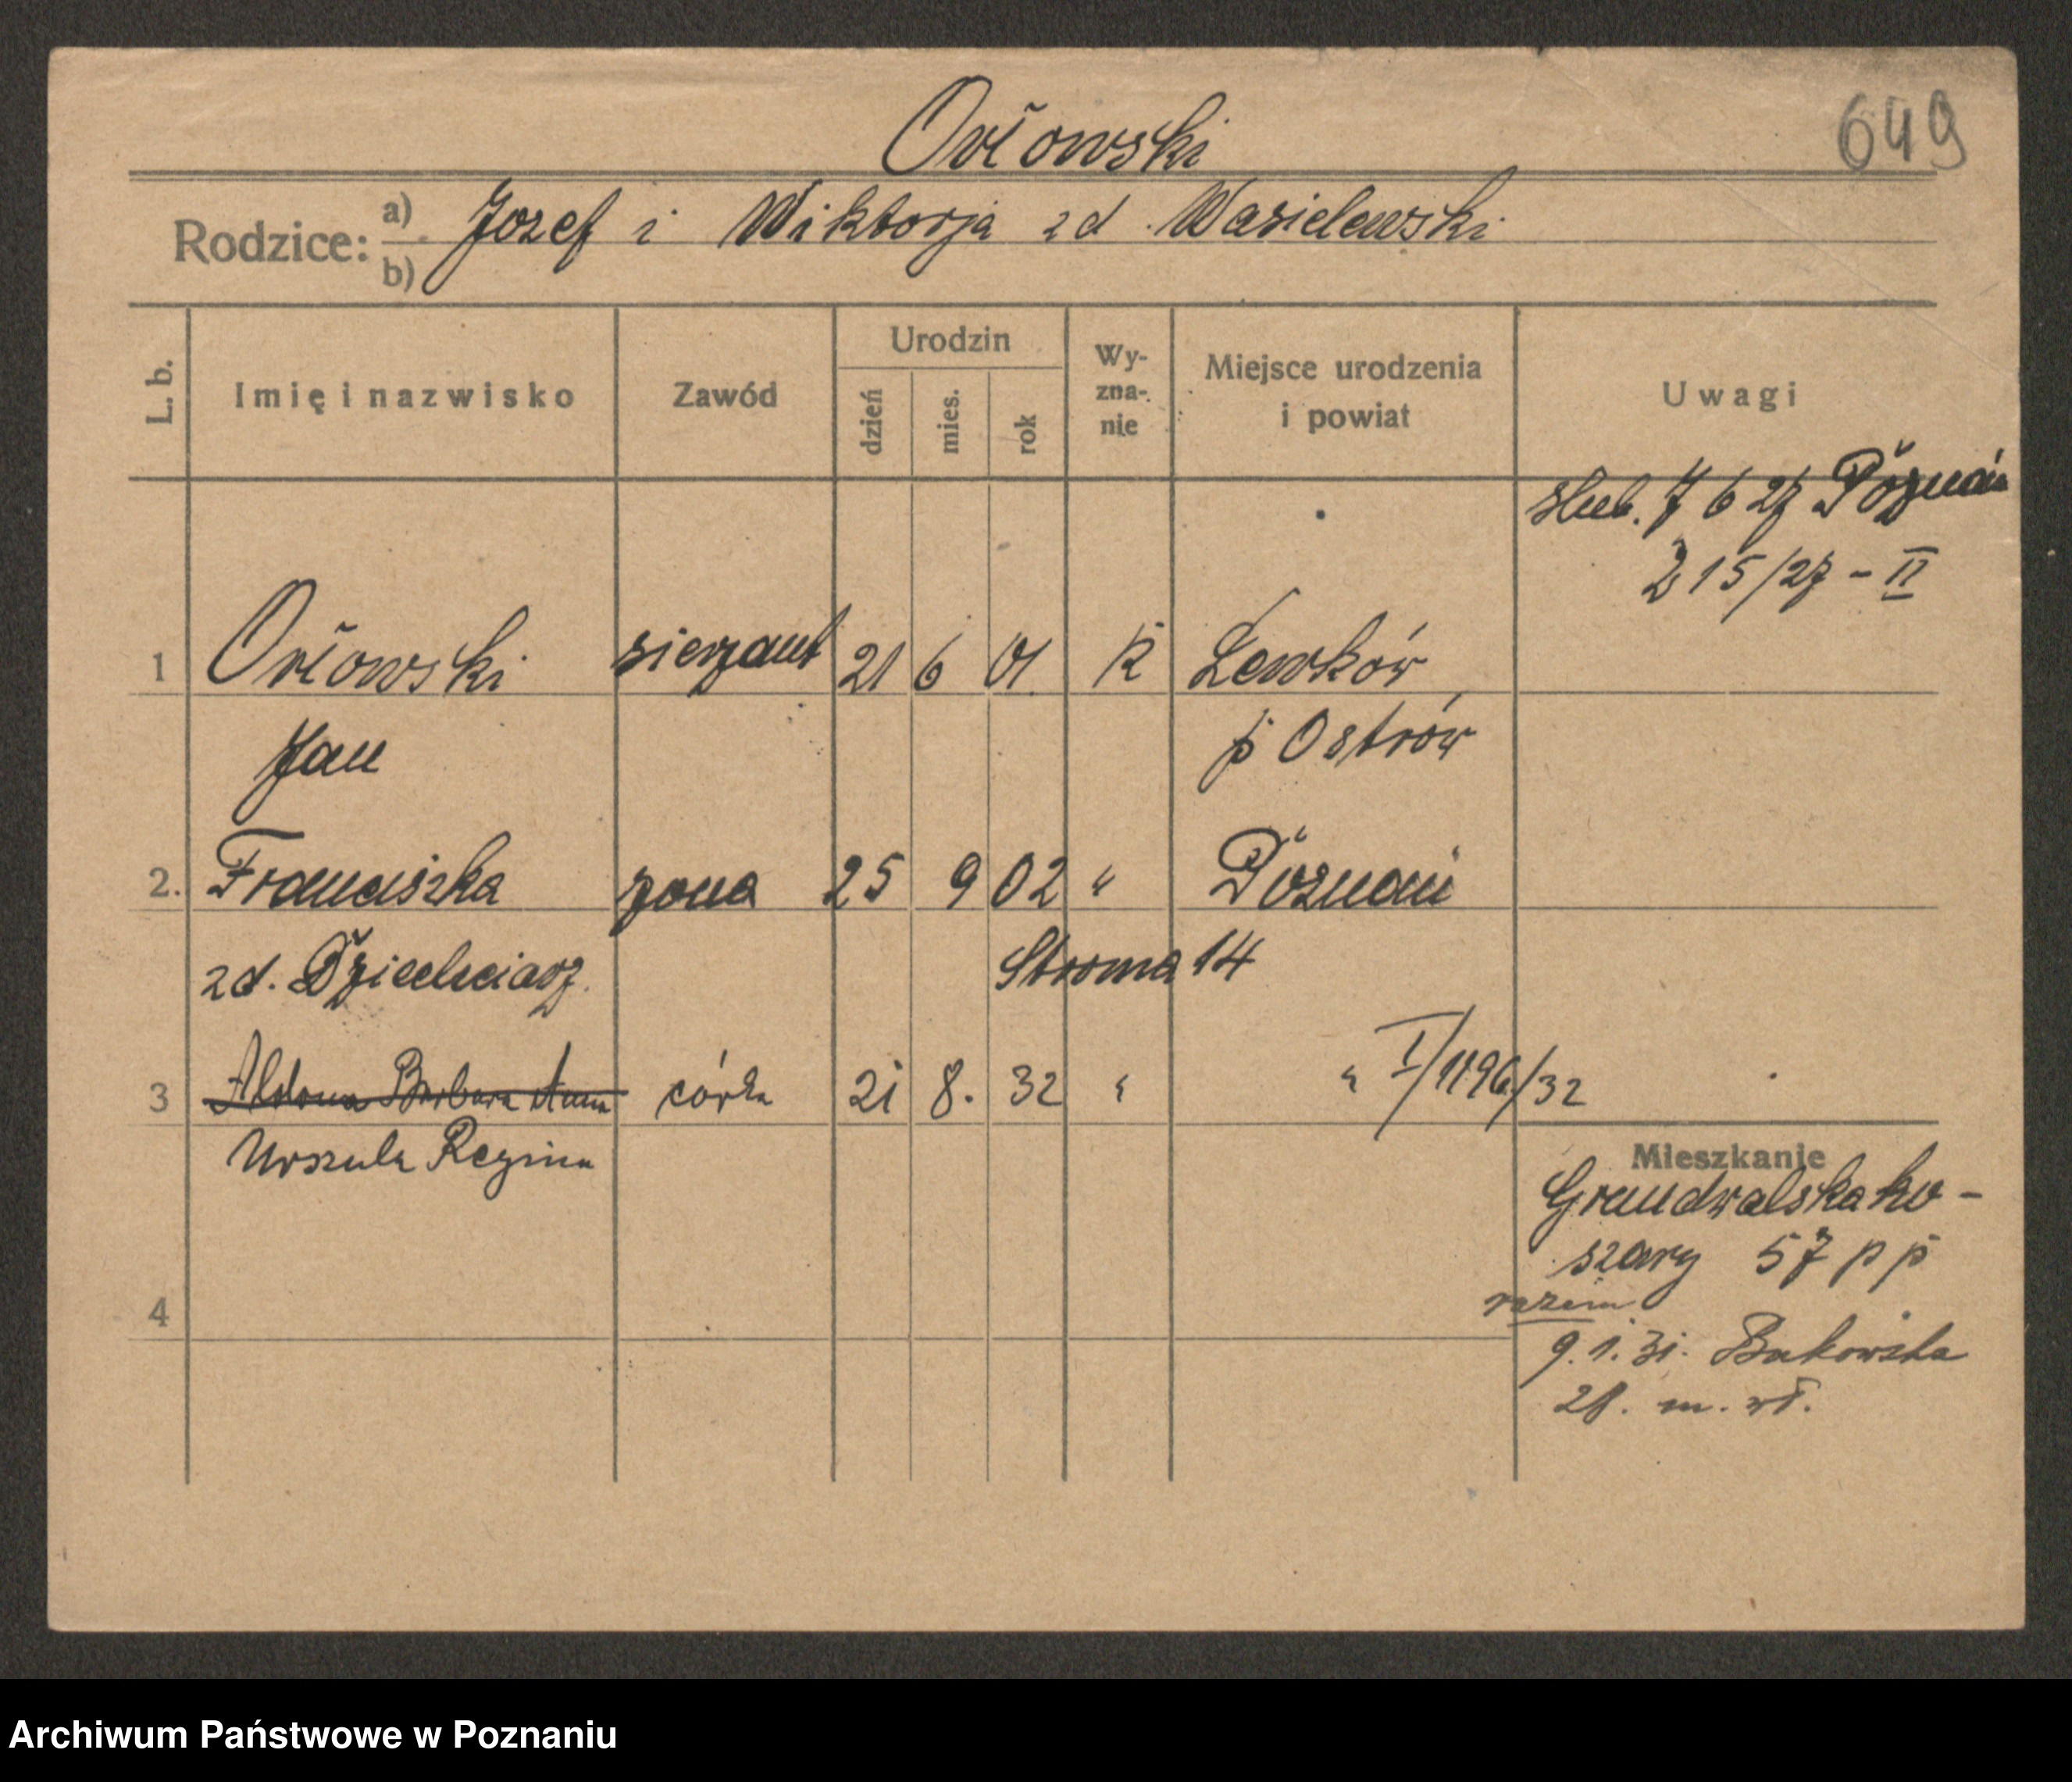 Orłowski
649
Rodzice: a) Jozef i Wiktorja zd. Wasielewski
b)
L. b. Imię i nazwisko Zawód Urodzin dzień mies. rok Wy-zna-nie Miejsce urodzenia i powiat Uwagi
slub. 7 6 27 Poznań
215/27 - II
1 Orłowski sierzant 21 6 01 k Lewków
Jan p Ostrów
2. Franciszka zona 25 9 02 " Poznań
zd. Stroma 14
3 Aldona Barbara Anna córka 21 8. 32 " " I/1196/32
Urszula Regina
Mieszkanie
Grundwalska ko-
szary 57 p p
4
razem
9.1.31. Bukowska
28. m. wł.
Archiwum Państwowe w Poznaniu